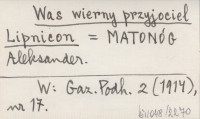 Was wierny przyjaciel
Lipnicon = MATONÓG
Aleksander.
W: Gaz. Podh. 2 (1914),
nr 17.